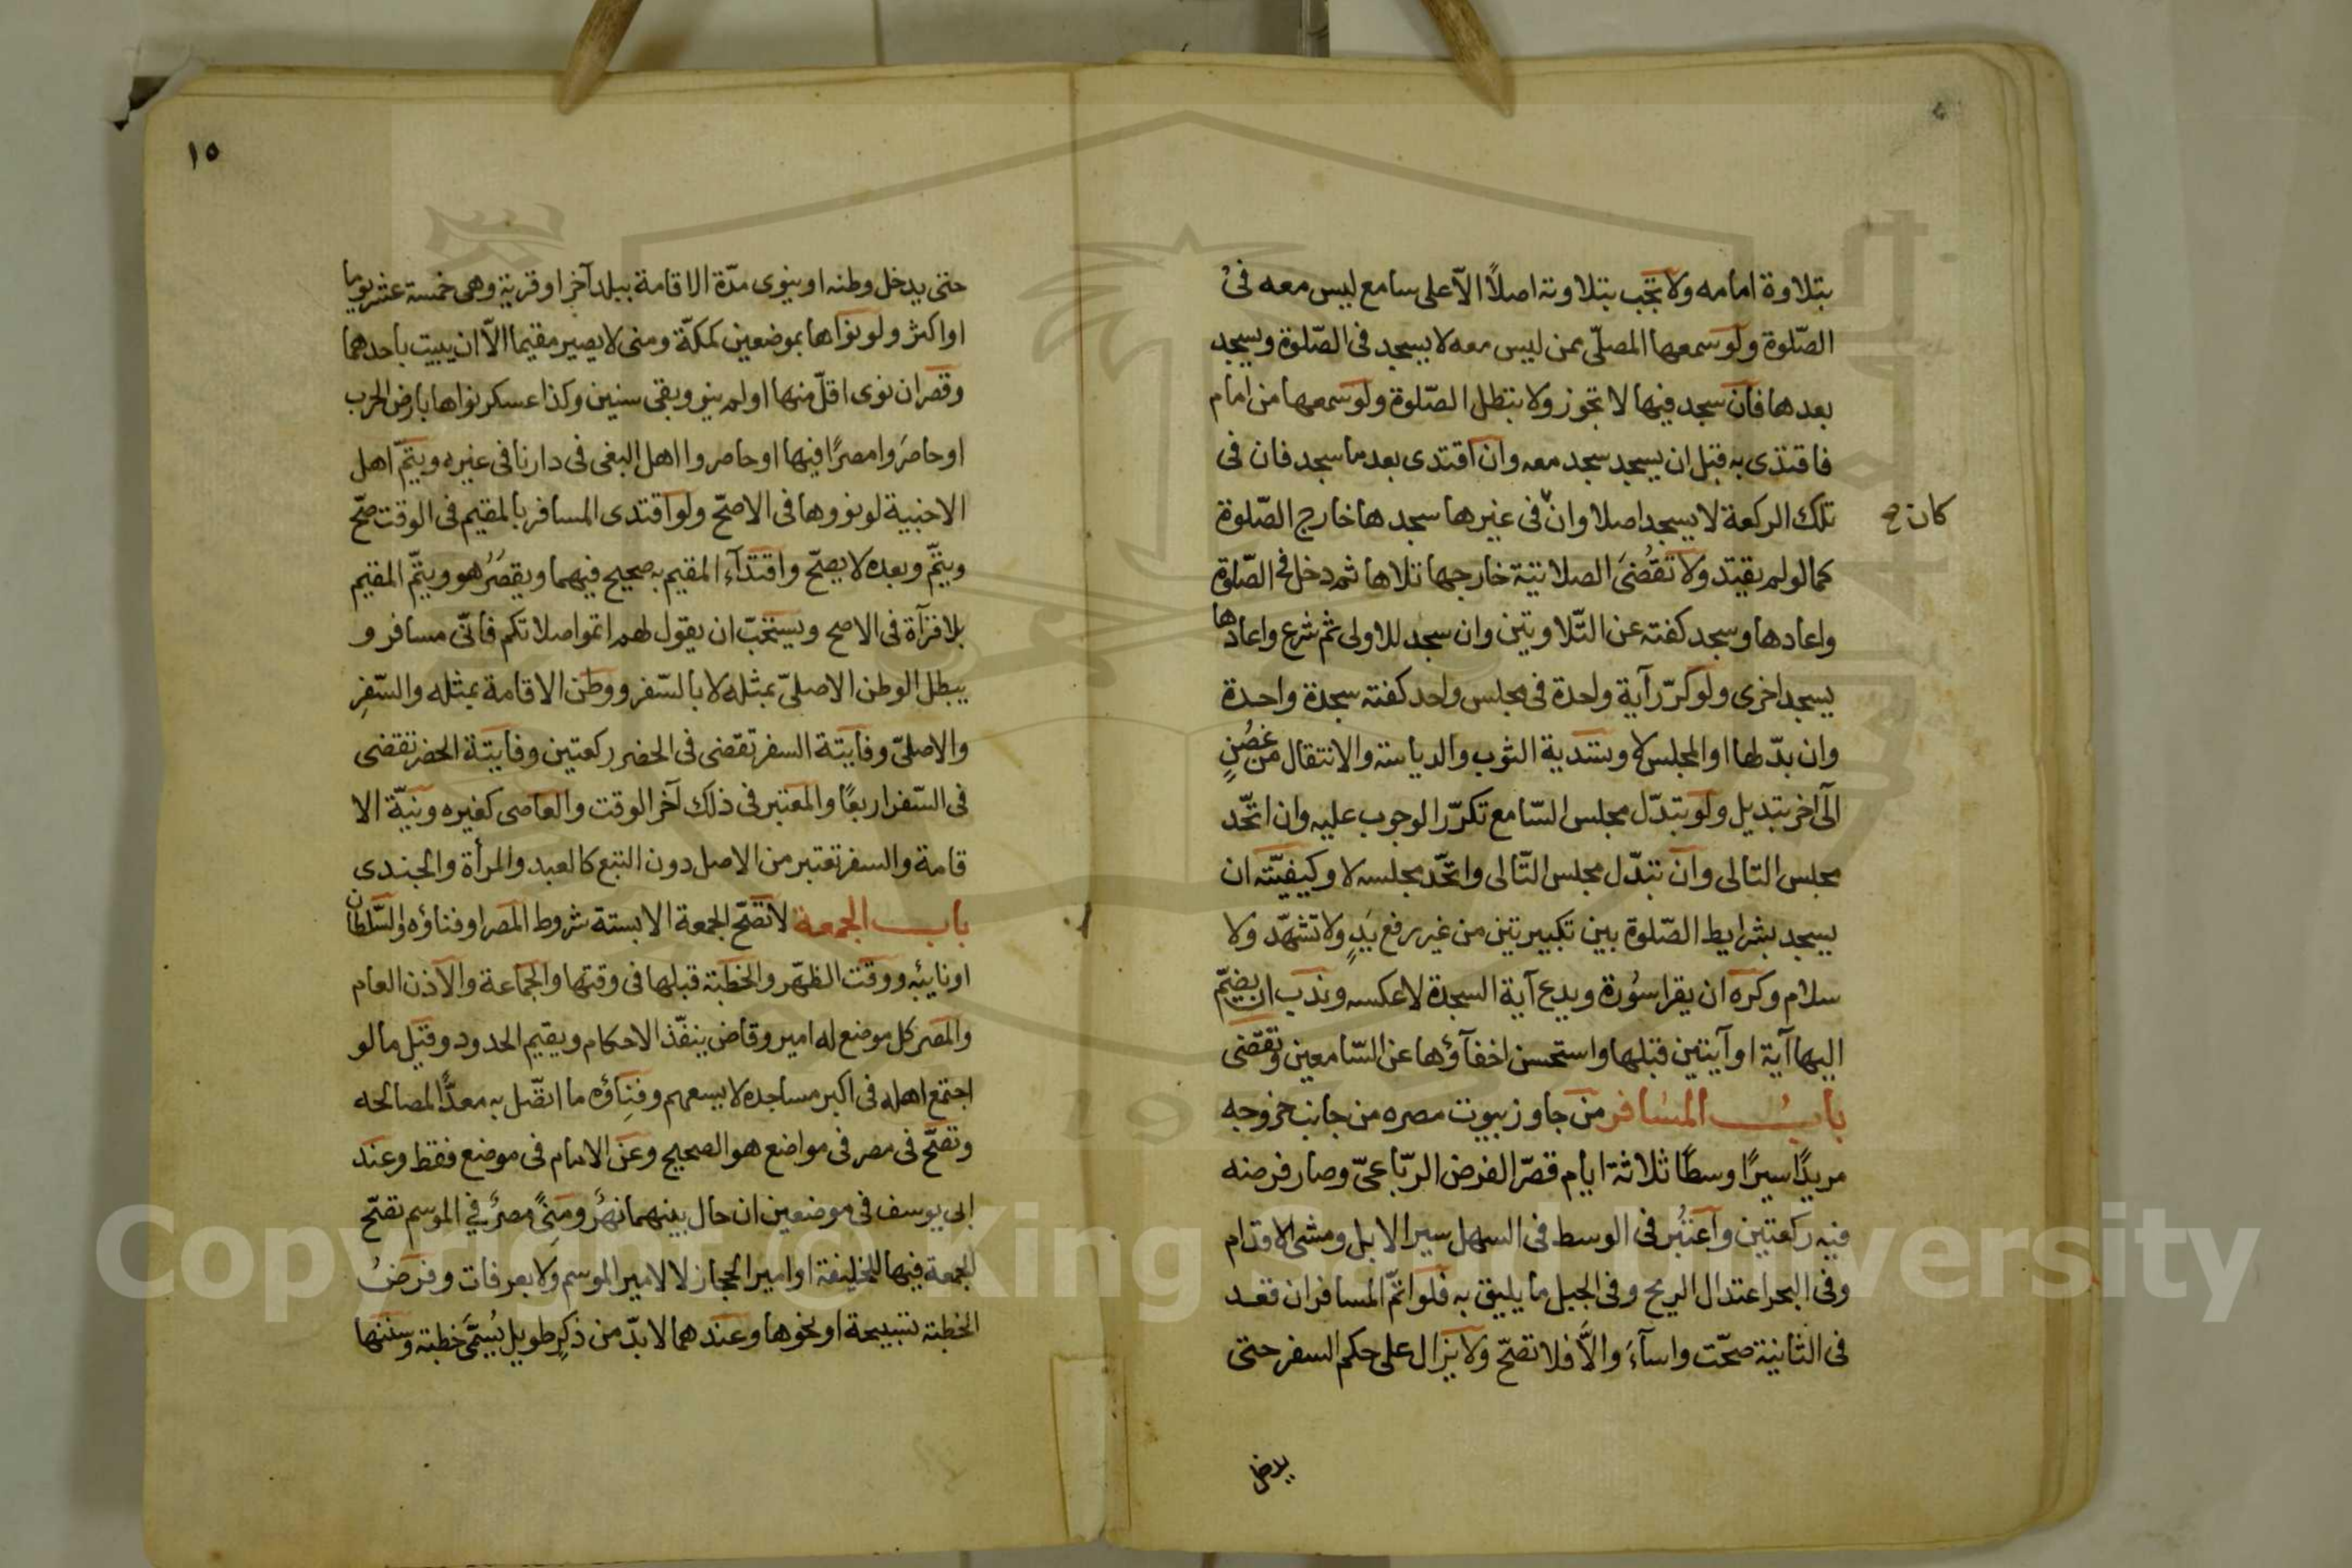 بتلاوة امامه ولا تجب بتلاوته اصلاً الاّ على سامع ليس معه فى
الصّلوة ولو سمعها المصلّى ممن ليس معه لا يسجد فى الصّلوة ويسجد
بعدها فان سجد فيها لا تجوز ولا تبطل الصّلوة ولو سمعها من امام
فاقتدى به قبل ان يسجد سجد معه وان اقتدى بعد ما سجد فان فى
تلك الركعة لا يسجد اصلا وان فى غيرها سجدها خارج الصّلوة
كان صح
كما لو لم يقتد ولا تقضى الصلاتية خارجها تلاها ثم دخل فى الصّلوة
واعادها وسجد كفته عن التّلاوتين وان سجد للاولى ثم شرع واعادها
يسجد اخرى ولو كرّر آية واحدة فى مجلس واحد كفته سجدة واحدة
وان بدّلها او المجلس لا وتسدية الثوب والدياسة والانتقال من غصن
الى آخر تبديل ولو تبدّل مجلس السّامع تكرّر الوجوب عليه وان اتّحد
مجلس التالى وان تبدّل مجلس التّالى واتّحد مجلسه لا وكيفيّته ان
يسجد بشرايط الصّلوة بين تكبيرتين من غير رفع يدٍ ولا تشهّد ولا
سلام وكره ان يقرا سورة ويدع آية السجدة لا عكسه وندب ان يضمّ
اليها آية او آيتين قبلها واستحسن اخفآؤها عن السّامعين وتقضى
باب المسافر من جاوز بيوت مصره من جانب خروجه
مريدًا سيرًا وسطًا ثلاثة ايام قصّر الفرض الرّباعىّ وصار فرضه
فيه ركعتين واعتُبر فى الوسط فى السهل سير الابل ومشى الاقدام
وفى البحر اعتدال الريح وفى الجبل ما يليق به فلو اتمّ المسافر ان قعد
فى الثانية صحّت واسآءَ والاّ فلا تصحّ ولا يزال على حكم السفر حتى
يدخل
١٥
حتى يدخل وطنه او ينوى مدّة الاقامة ببلد آخر او قرية وهى خمسة عشر يوما
او اكثر ولو نواها بموضعين كمكّة ومنى لا يصير مقيما الاّ ان يبيت باحدهما
وقصر ان نوى اقلّ منها او لم ينو وبقى سنين وكذا عسكر نواها بارض الحرب
او حاصروا مصرًا فيها او حاصروا اهل البغى فى دارنا فى غيره ويتمّ اهل
الاخبية لو نووها فى الاصحّ ولو اقتدى المسافر بالمقيم فى الوقت صحّ
ويتمّ وبعده لا يصحّ واقتدآء المقيم به صحيح فيهما ويقصُر هو ويتمّ المقيم
بلا قرآة فى الاصح ويستحبّ ان يقول لهم اتموا صلاتكم فانّى مسافر و
يبطل الوطن الاصلىّ بمثله لا بالسّفر ووطن الاقامة بمثله والسّفرِ
والاصلىّ وفايتة السفر تقضى فى الحضر ركعتين وفايتة الحضر تقضى
فى السّفر اربعًا والمعتبر فى ذلك آخر الوقت والعاصى كغيره ونيّة الا
قامة والسفر تعتبر من الاصل دون التبع كالعبد والمرأة والجندى
باب الجمعة لا تصحّ الجمعة الا بستة شروط المصر او فناؤه والسّلطان
او نايبه ووقت الظهر والخطبة قبلها فى وقتها والجماعة والاذن العام
والمصر كل موضع له امير وقاض ينفّذ الاحكام ويقيم الحدود وقيل ما لو
اجتمع اهله فى اكبر مساجده لا يسعهم وفِناؤه ما اتّصل به معدًّا لمصالحه
وتصحّ فى مصر فى مواضع هو الصحيح وعن الامام فى موضع فقط وعند
ابى يوسف فى موضعين ان حال بينهما نهرٌ ومنىً مصرٌ في الموسم تصحّ
الجمعة فيها للخليفة او امير الحجاز لا لامير الموسم ولا بعرفات وفرضُ
الخطبة تسبيحة او نحوها وعندهما لا بدّ من ذكرٍ طويل يُسمَّى خطبة وسننها
Copyright © King Saud University